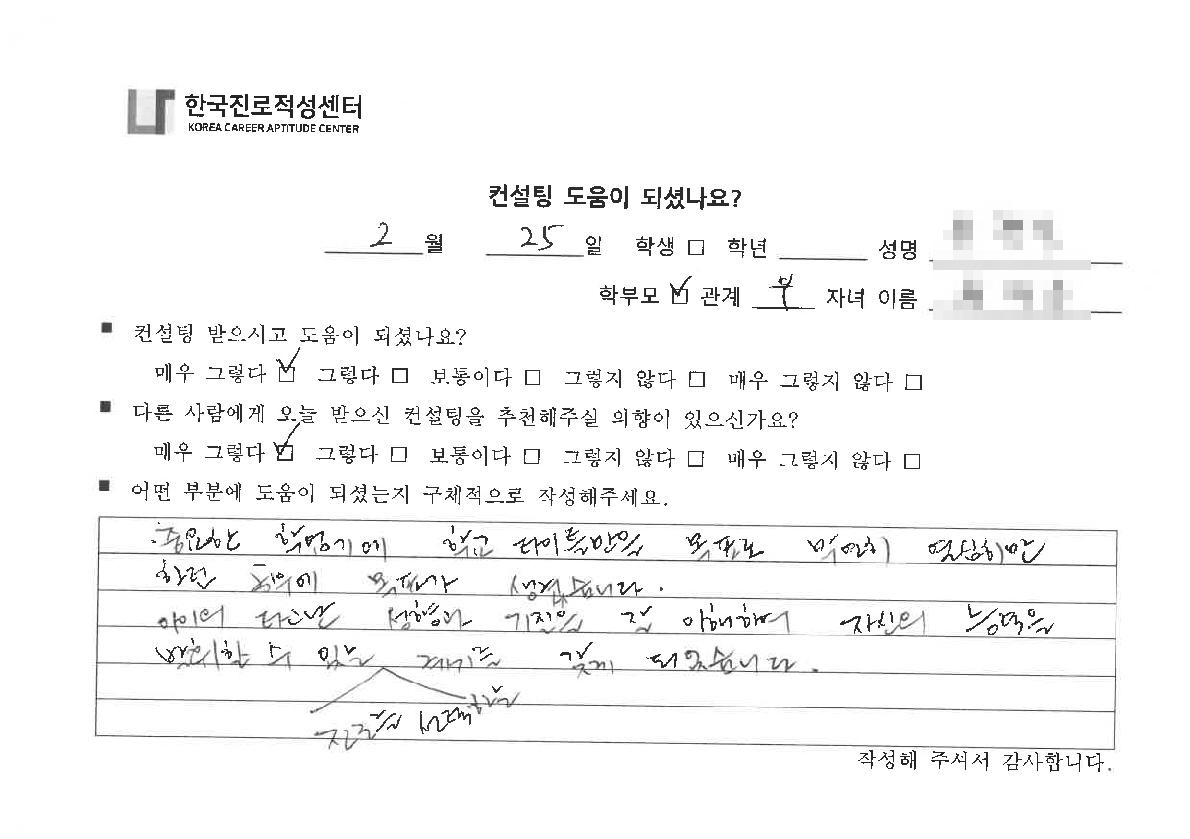 한국진로적성센터
KOREA CAREER APTITUDE CENTER
컨설팅 도움이 되셨나요?
2 월 25 일 학생 □ 학년 성명
학부모 ☑ 관계 부 자녀 이름
■ 컨설팅 받으시고 도움이 되셨나요?
매우 그렇다 ☑ 그렇다 □ 보통이다 □ 그렇지 않다 □ 매우 그렇지 않다 □
■ 다른 사람에게 오늘 받으신 컨설팅을 추천해주실 의향이 있으신가요?
매우 그렇다 ☑ 그렇다 □ 보통이다 □ 그렇지 않다 □ 매우 그렇지 않다 □
■ 어떤 부분에 도움이 되셨는지 구체적으로 작성해주세요.
중요한 학령기에 학교 목표로 막연히 열심히만
하던 공부에 목표가 생겼습니다.
아이의 타고난 성향과 기질을 잘 이해하며 자신의 능력을
발휘할 수 있는 계기를 갖게 되었습니다.
진로를 선택하는
작성해 주셔서 감사합니다.